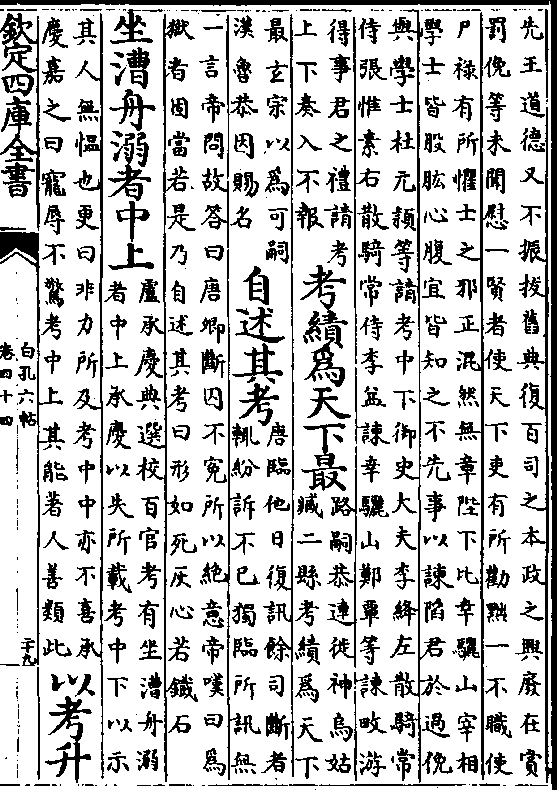 先王道德又不振拔舊典復百司之本政之興廢在賞
罰俛等未聞慰一賢者使天下吏有所勸黜一不職使
尸祿有所懼士之邪正混然無章陛下比幸驪山宰相
學士皆股肱心腹宜皆知之不先事以諫陷君於過俛
與學士杜元頴等請考中下御史大夫李絳左散騎常
侍張惟素右散騎常侍李益諫幸驪山鄭覃等諫畋游
得事君之禮請考
上下奏入不報
考績爲天下最
路嗣恭連徙神烏姑
臧二縣考績爲天下
最玄宗以爲可嗣
漢魯恭因賜名
自述其考
唐臨他日復訊餘司斷者
輒紛訴不已獨臨所訊無
一言帝問故答曰唐卿斷囚不寃所以絶意帝嘆曰爲
獄者固當若是乃自述其考曰形如死灰心若鐵石
坐漕舟溺者中上
盧承慶典選校百官考有坐漕舟溺
者中上承慶以失所載考中下以示
其人無愠也更曰非力所及考中中亦不喜承
慶嘉之曰寵辱不驚考中上其能著人善類此
以考升
欽定四庫全書
白孔六帖
卷四十四
二十九